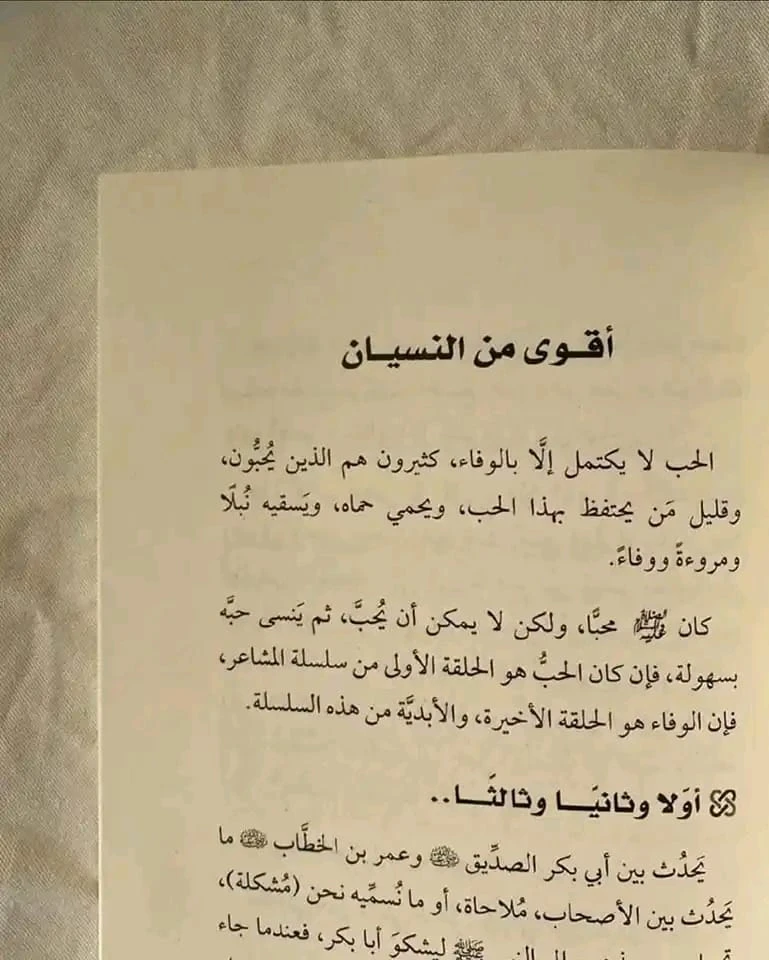 أقـوى من النسيـان
الحب لا يكتمل إلَّا بالوفاء، كثيرون هم الذين يُحبُّون،
وقليل مَن يحتفظ بهذا الحب، ويحمي حماه، ويَسقيه نُبلًا
ومروءةً ووفاءً.
كان محبًّا، ولكن لا يمكن أن يُحبَّ، ثم يَنسى حبَّه
بسهولة، فإن كان الحبُّ هو الحلقة الأولى من سلسلة المشاعر،
فإن الوفاء هو الحلقة الأخيرة، والأبديَّة من هذه السلسلة.
أوَلا وثانيًـا وثالثًـا..
يَحدُث بين أبي بكر الصدِّيق ﵁ وعمر بن الخطَّاب ﵁ ما
يَحدُث بين الأصحاب، مُلاحاة، أو ما نُسمِّيه نحن (مُشكلة)،
ﷺ ليشكوَ أبا بكر، فعندما جاء